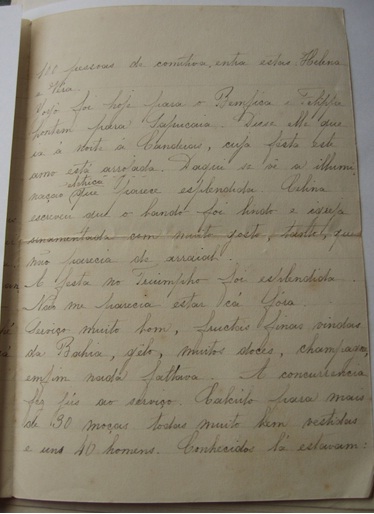 100 pessoas de comitiva, entre estas Helena
e Ilka.
foi hoje para o Bemfica e Felippe
hontem para Sapucaia. Disse elle que
ia á noite á Candeias, cuja festa este
anno está arrojada. Daqui se vê a illumi
nação electrica que parece esplendida. Celina
escreveu que o bando foi lindo e igreja
ornamentada com muito gosto, que
não parecia de arraial.
A festa no Triumpho foi esplendida.
Não me parecia estar cá fóra.
Serviço muito bom, fructas finas vindas
da Bahia, gêlo, muitos doces, champagne,
emfim nada faltava. A concurrencia
fez jús ao serviço. Calculo para mais
de 30 moças todas muito bem vestidas
e uns 40 homens. Conhecidos lá estavam: